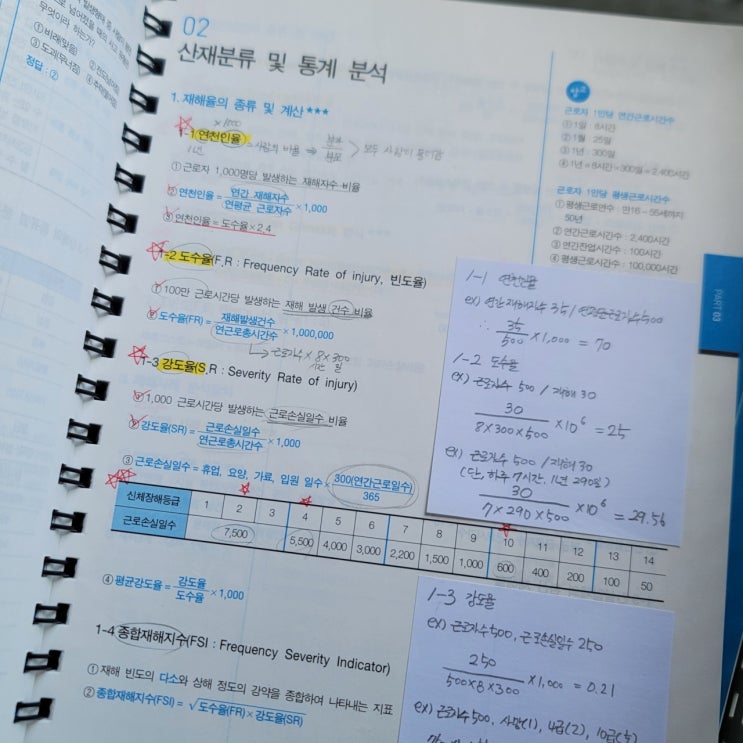 무엇이라 하는가?
① 비래(맞음)
③ 도괴(무너짐)
정답 : ②
02
산재분류 및 통계 분석
1. 재해율의 종류 및 계산 ***
×1000
1-1 연천인율
1년
사람의 비율 ⇒ 분자/분모 > 모두 사람이 들어감
① 근로자 1,000명당 발생하는 재해자수 비율
② 연천인율 = 연간 재해자수/연평균 근로자수 × 1,000
③ 연천인율 = 도수율 × 2.4
1-2 도수율(F.R : Frequency Rate of injury, 빈도율)
① 100만 근로시간당 발생하는 재해 발생 건수 비율
② 도수율(FR) = 재해발생건수/연근로총시간수 × 1,000,000
근로자수 × 8 × 300
시간 일
1-3 강도율(S.R : Severity Rate of injury)
① 1,000 근로시간당 발생하는 근로손실일수 비율
② 강도율(SR) = 근로손실일수/연근로총시간수 × 1,000
③ 근로손실일수 = 휴업, 요양, 가료, 입원 일수 × 300(연간근로일수)/365
신체장해등급 1 2 3 4 5 6 7 8 9 10 11 12 13 14
근로손실일수 7,500 5,500 4,000 3,000 2,200 1,500 1,000 600 400 200 100 50
④ 평균강도율 = 강도율/도수율 × 1,000
1-4 종합재해지수(FSI : Frequency Severity Indicator)
① 재해 빈도의 다소와 상해 정도의 강약을 종합하여 나타내는 지표
② 종합재해지수(FSI) = √도수율(FR) × 강도율(SR)
참고
근로자 1인당 연간근로시간수
① 1일 : 8시간
② 1월 : 25일
③ 1년 : 300일
④ 1년 = 8시간 × 300일 = 2,400시간
근로자 1인당 평생근로시간수
① 평생근로연수 : 만16~55세까지
50년
② 연간근로시간수 : 2,400시간
③ 연간잔업시간수 : 100시간
④ 평생근로시간수 : 100,000시간
PART 03
1-1 연천인율
ex) 연간재해자수 35 / 연평균근로자수 500
∴ 35/500 × 1,000 = 70
1-2 도수율
ex) 근로자수 500 / 재해 30
30/8×300×500 × 10⁶ = 25
ex) 근로자수 500 / 재해 30
(단, 하루 7시간, 1년 290일)
30/7×290×500 × 10⁶ = 29.56
1-3 강도율
ex) 근로자수 500, 근로손실일수 250
250/500×8×300 × 1,000 = 0.21
ex) 근로자수 500, 사망(1), 4급(2), 10급(